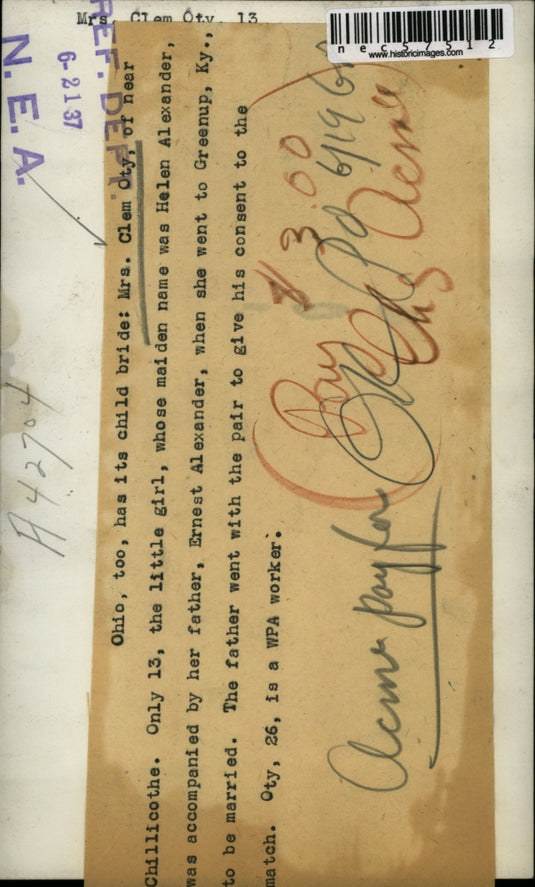 Mrs. Clem Oty, 13
necS7512
www.historicimages.com
REF. DEPT.
6-21 37
N. E. A.
A42704
Ohio, too, has its child bride: Mrs. Clem Oty, of near
Chillicothe. Only 13, the little girl, whose maiden name was Helen Alexander,
was accompanied by her father, Ernest Alexander, when she went to Greenup, Ky.,
to be married. The father went with the pair to give his consent to the
match. Oty, 26, is a WPA worker.
$3.00
Pay
Acme
Acme pay for